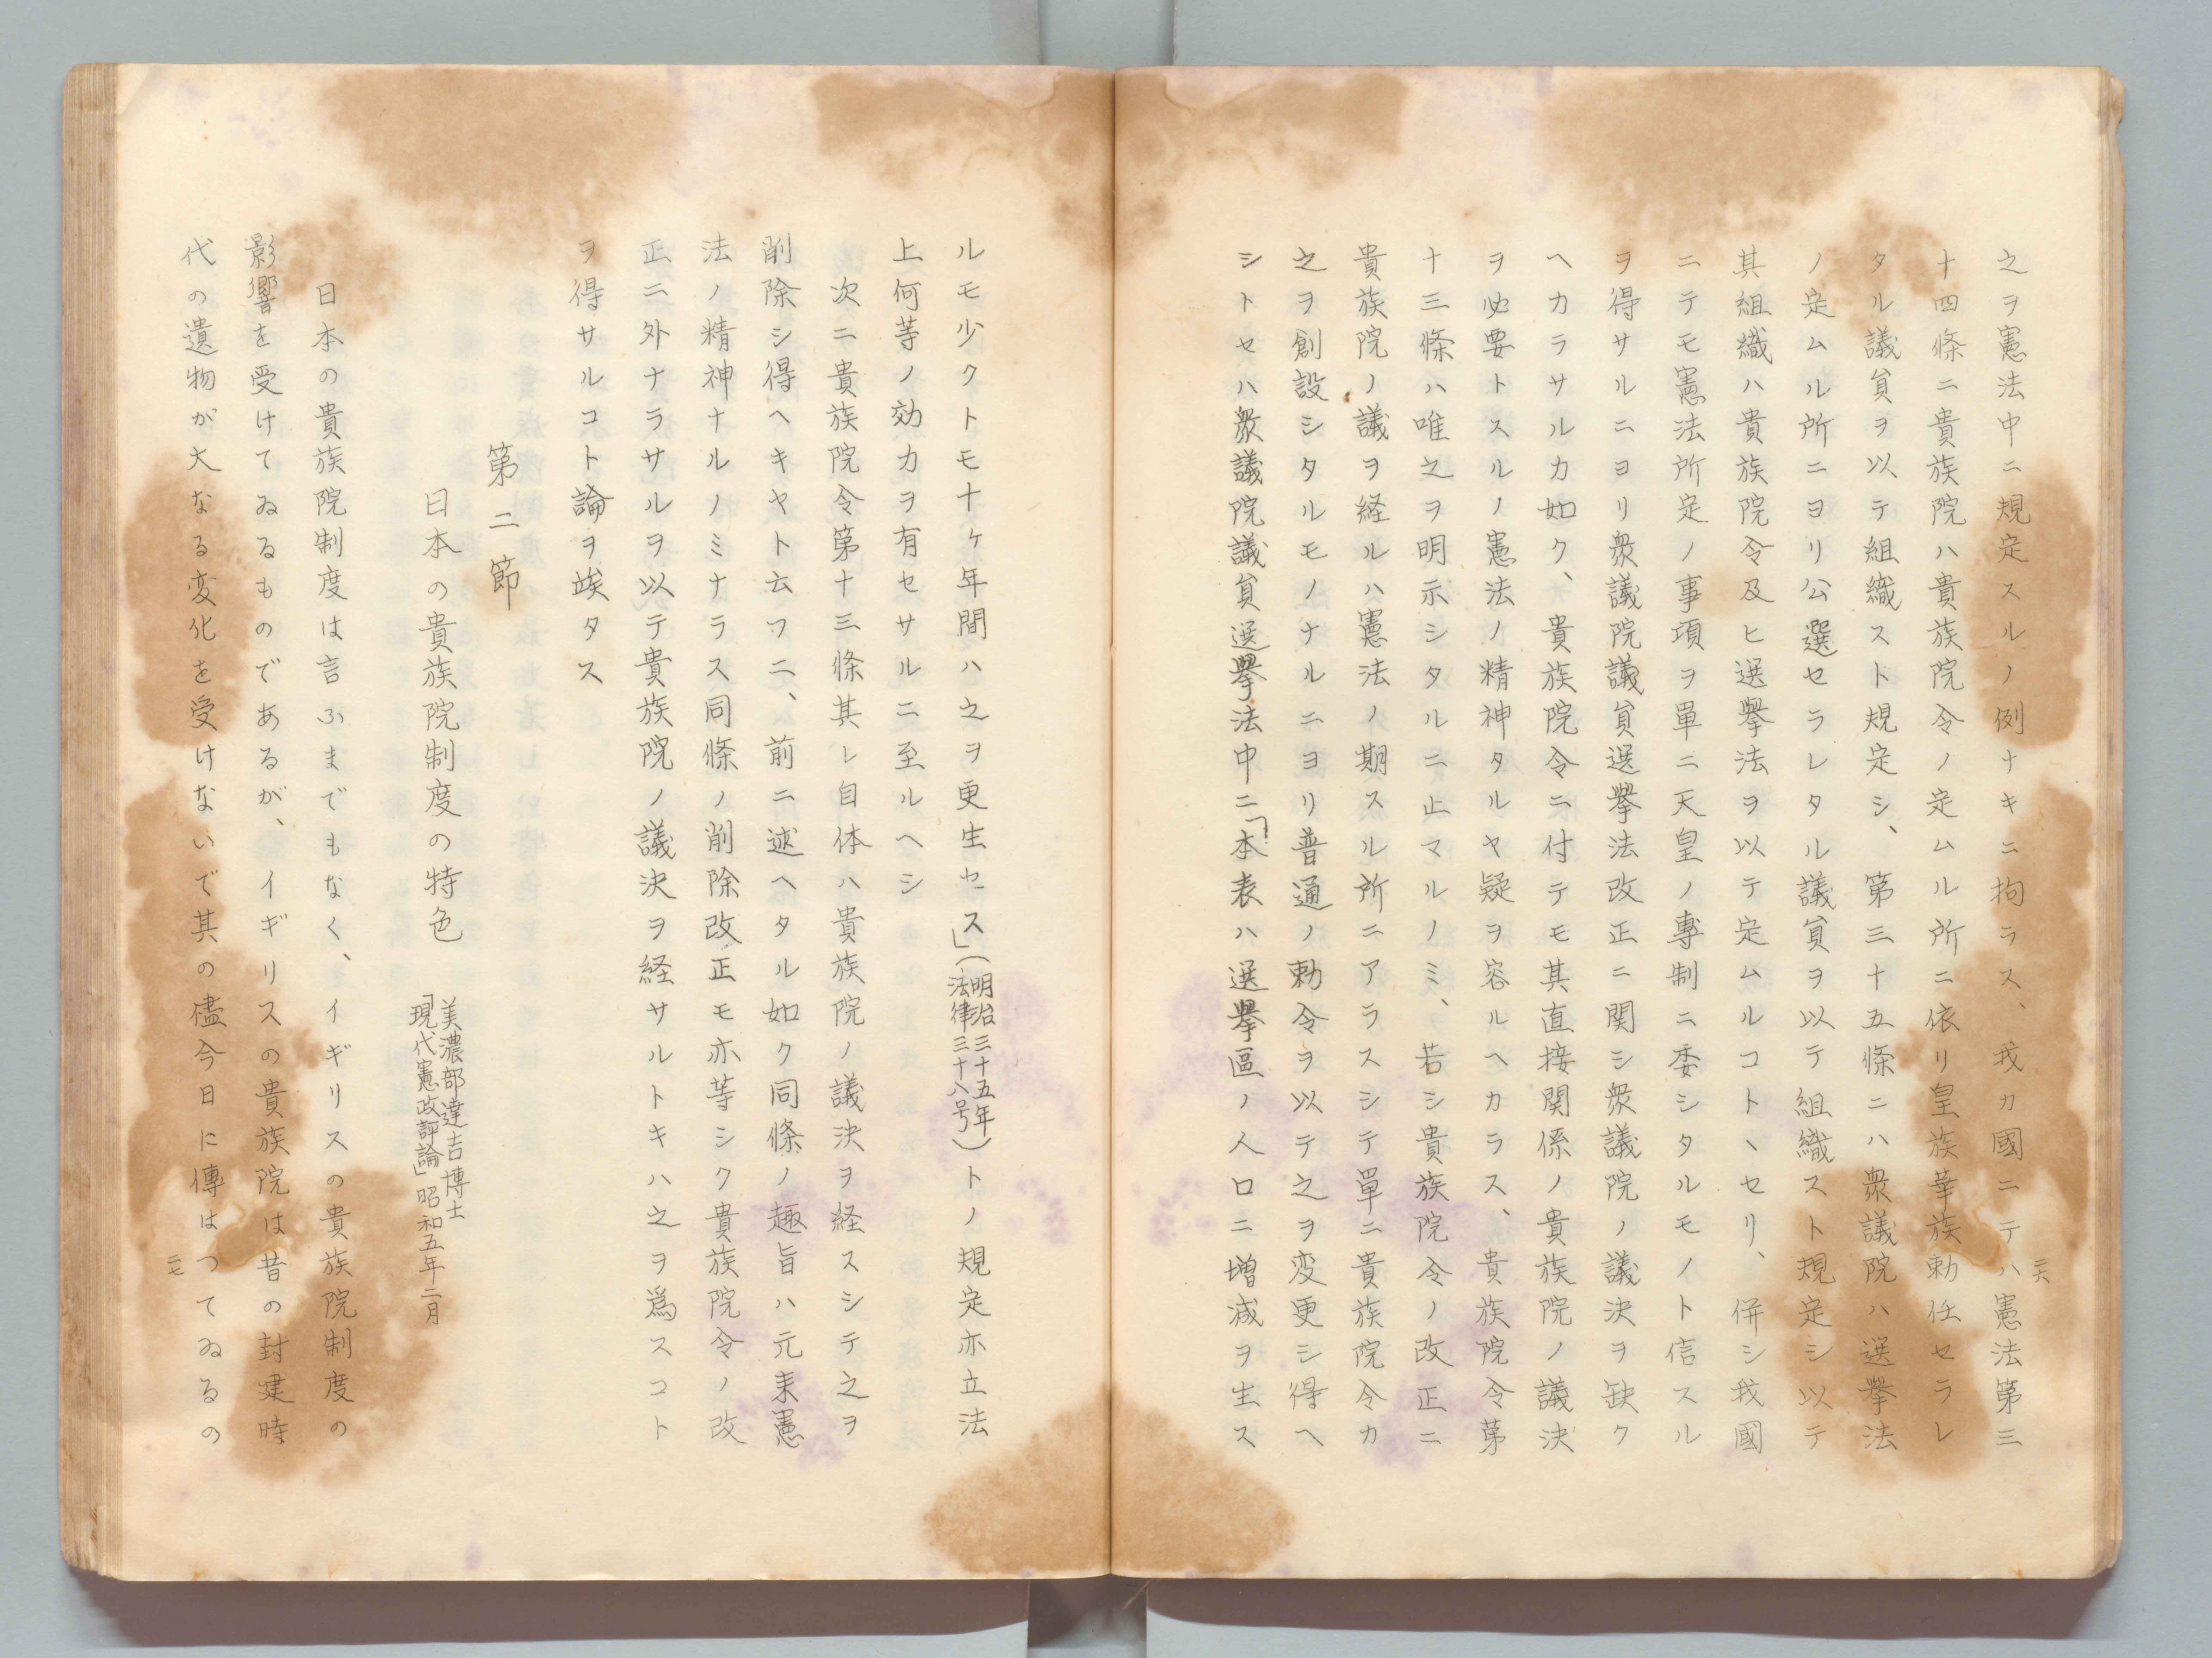 之ヲ憲法中ニ規定スルノ例ナキニ拘ラス、我カ國ニテハ憲法第三
十四條ニ貴族院ハ貴族院令ノ定ムル所ニ依リ皇族華族勅任セラレ
タル議員ヲ以テ組織スト規定シ、第三十五條ニハ衆議院ハ選挙法
ノ定ムル所ニヨリ公選セラレタル議員ヲ以テ組織スト規定シ以テ
其組織ハ貴族院令及ヒ選挙法ヲ以テ定ムルコトヽセリ、併シ我國
ニテモ憲法所定ノ事項ヲ單ニ天皇ノ専制ニ委シタルモノト信スル
ヲ得サルニヨリ衆議院議員選挙法改正ニ関シ衆議院ノ議決ヲ缺ク
ヘカラサルカ如ク、貴族院令ニ付テモ其直接関係ノ貴族院ノ議決
ヲ必要トスルノ憲法ノ精神タルヤ疑ヲ容ルヘカラス、貴族院令第
十三條ハ唯之ヲ明示シタルニ止マルノミ、若シ貴族院令ノ改正ニ
貴族院ノ議ヲ経ルハ憲法ノ期スル所ニアラスシテ單ニ貴族院令カ
之ヲ創設シタルモノナルニヨリ普通ノ勅令ヲ以テ之ヲ変更シ得ヘ
シトセハ衆議院議員選挙法中ニ「本表ハ選挙區ノ人口ニ増減ヲ生ス
二六
ルモ少クトモ十ヶ年間ハ之ヲ更生セス」(明治三十五年法律三十八号)トノ規定亦立法
上何等ノ効力ヲ有セサルニ至ルヘシ
次ニ貴族院令第十三條其レ自体ハ貴族院ノ議決ヲ経スシテ之ヲ
削除シ得ヘキヤト云フニ、前ニ述ヘタル如ク同條ノ趣旨ハ元来憲
法ノ精神ナルノミナラス同條ノ削除改正モ亦等シク貴族院令ノ改
正ニ外ナラサルヲ以テ貴族院ノ議決ヲ経サルトキハ之ヲ爲スコト
ヲ得サルコト論ヲ埃タス
第二節
日本の貴族院制度の特色
美濃部達吉博士
「現代憲政評論」昭和五年二月
日本の貴族院制度は言ふまでもなく、イギリスの貴族院制度の
影響を受けてゐるものであるが、イギリスの貴族院は昔の封建時
代の遺物が大なる変化を受けないで其の儘今日に傳はつてゐるの
二七